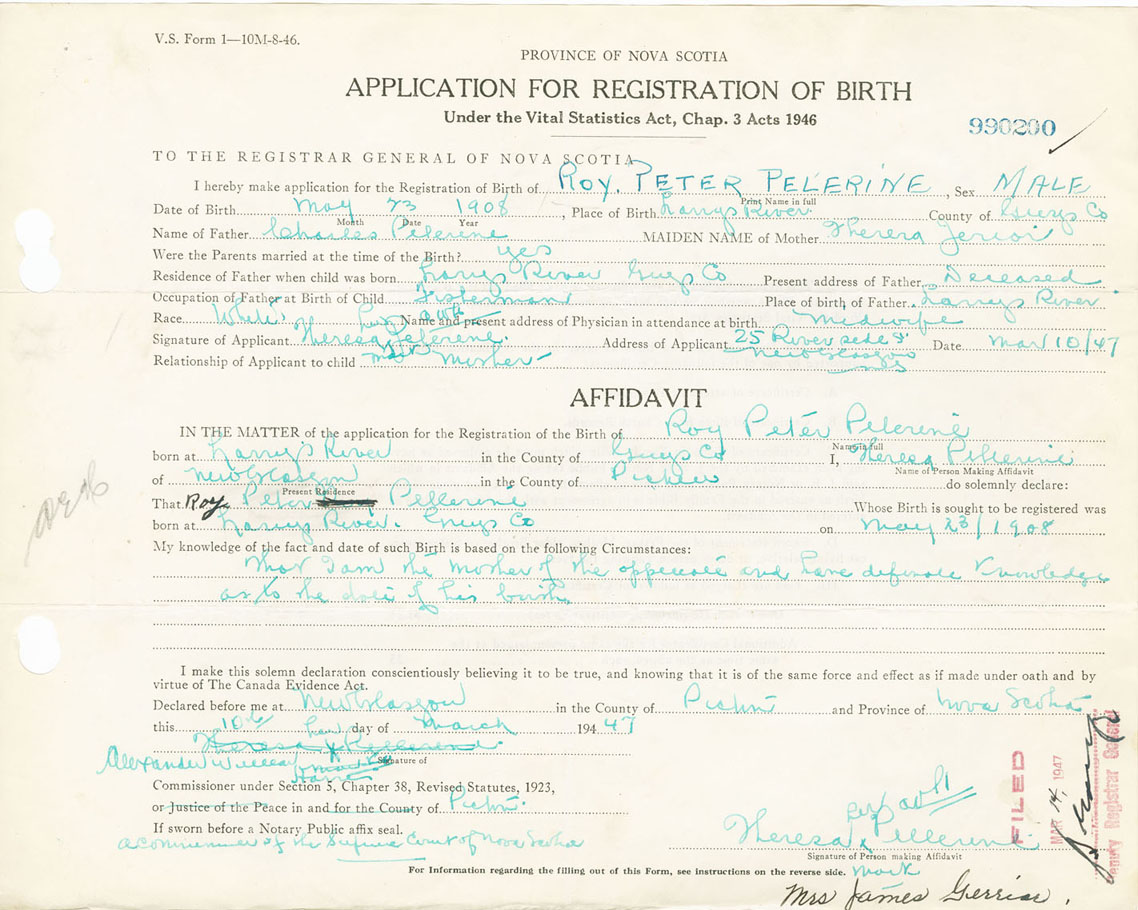 V.S. Form 1—10M-8-46.
PROVINCE OF NOVA SCOTIA
APPLICATION FOR REGISTRATION OF BIRTH
Under the Vital Statistics Act, Chap. 3 Acts 1946
990200
TO THE REGISTRAR GENERAL OF NOVA SCOTIA
I hereby make application for the Registration of Birth of ROY. PETER PELERINE, Sex MALE
Print Name in full
Date of Birth May 23 1908, Place of Birth Larrys River County of Guys Co
Month Date Year
Name of Father Charles Pelerene MAIDEN NAME of Mother Theresa
Were the Parents married at the time of the Birth? yes
Residence of Father when child was born Larrys River Guys Co Present address of Father Deceased
Occupation of Father at Birth of Child Fisherman Place of birth of Father Larrys River
Race White Name and present address of Physician in attendance at birth Midwife
her
Signature of Applicant Theresa Pelerene. Address of Applicant 25 River sede St Date Mar 10/47
New Glasgow
NS
Relationship of Applicant to child mark Mother
AFFIDAVIT
IN THE MATTER of the application for the Registration of the Birth of Roy Peter Pelerine
Name in full
born at Larrys River in the County of Guys Co I, Theresa Pellerine
Name of Person Making Affidavit
of New Glasgow in the County of Pictou do solemnly declare:
Present Residence
That Roy Peter Pellerine Whose Birth is sought to be registered was
born at Larrys River. Guys Co on May 23/1908
My knowledge of the fact and date of such Birth is based on the following Circumstances:
That I am the Mother of the and have Knowledge
as to the date of his birth
I make this solemn declaration conscientiously believing it to be true, and knowing that it is of the same force and effect as if made under oath and by
virtue of The Canada Evidence Act.
Declared before me at New Glasgow in the County of Pictou and Province of Nova Scotia
this 10th day of March 194 47
Theresa x Pellerene.
Alexander
mark
Signature of
Commissioner under Section 5, Chapter 38, Revised Statutes, 1923,
or Justice of the Peace in and for the County of Pictou.
If sworn before a Notary Public affix seal.
a commissioner of the Supreme Court of Nova Scotia
Theresa x Pellerine
Signature of Person making Affidavit
mark
For Information regarding the filling out of this Form, see instructions on the reverse side.
Mrs James Gerrior.
FILED
MAR 14, 1947
Deputy Registrar General